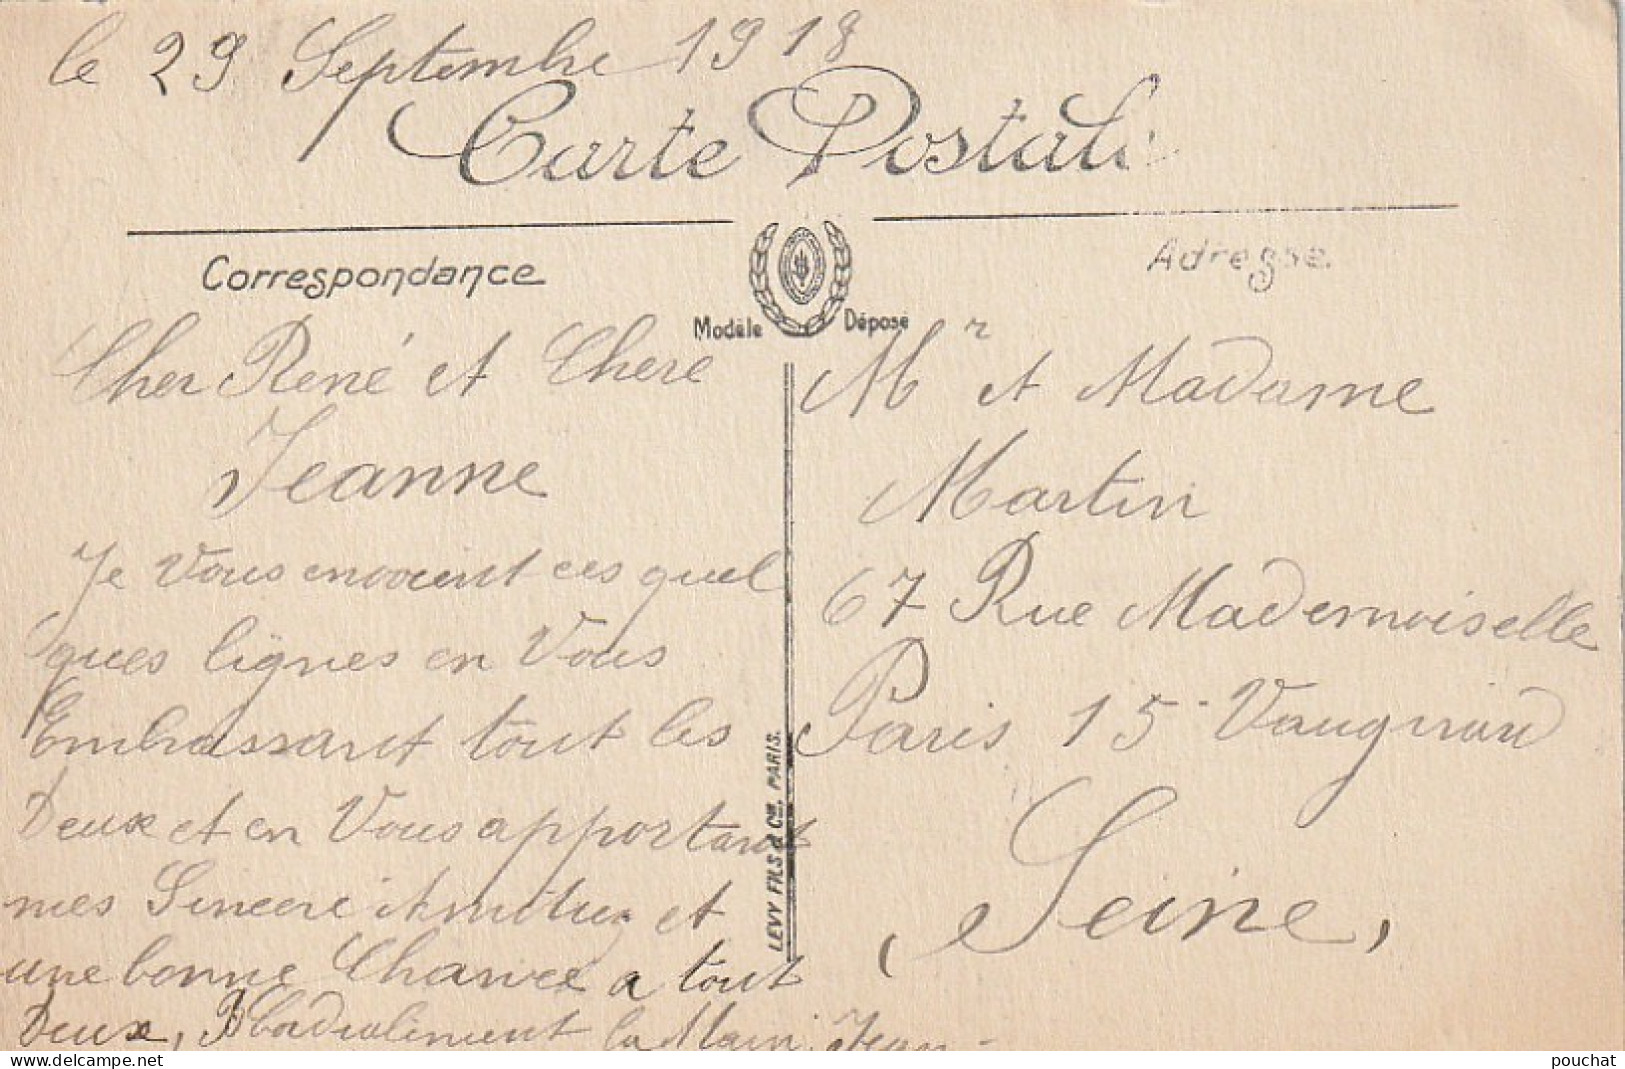 le 29 Septembre 1918
Carte Postale
Correspondance
Adresse
Modèle Déposé
Cher René et Chere
Jeanne
Je Vous envoient ces quel
ques lignes en Vous
Embrassant tout les
Deux et en Vous apportant
mes Sincere Amitiez et
une bonne Chance a tout
Deux, la Main Jean
LEVY FILS & Cie, PARIS.
Mr et Madame
Martin
67 Rue Mademoiselle
Paris 15 Vaugirard
(Seine,
delcampe.net
pouchat